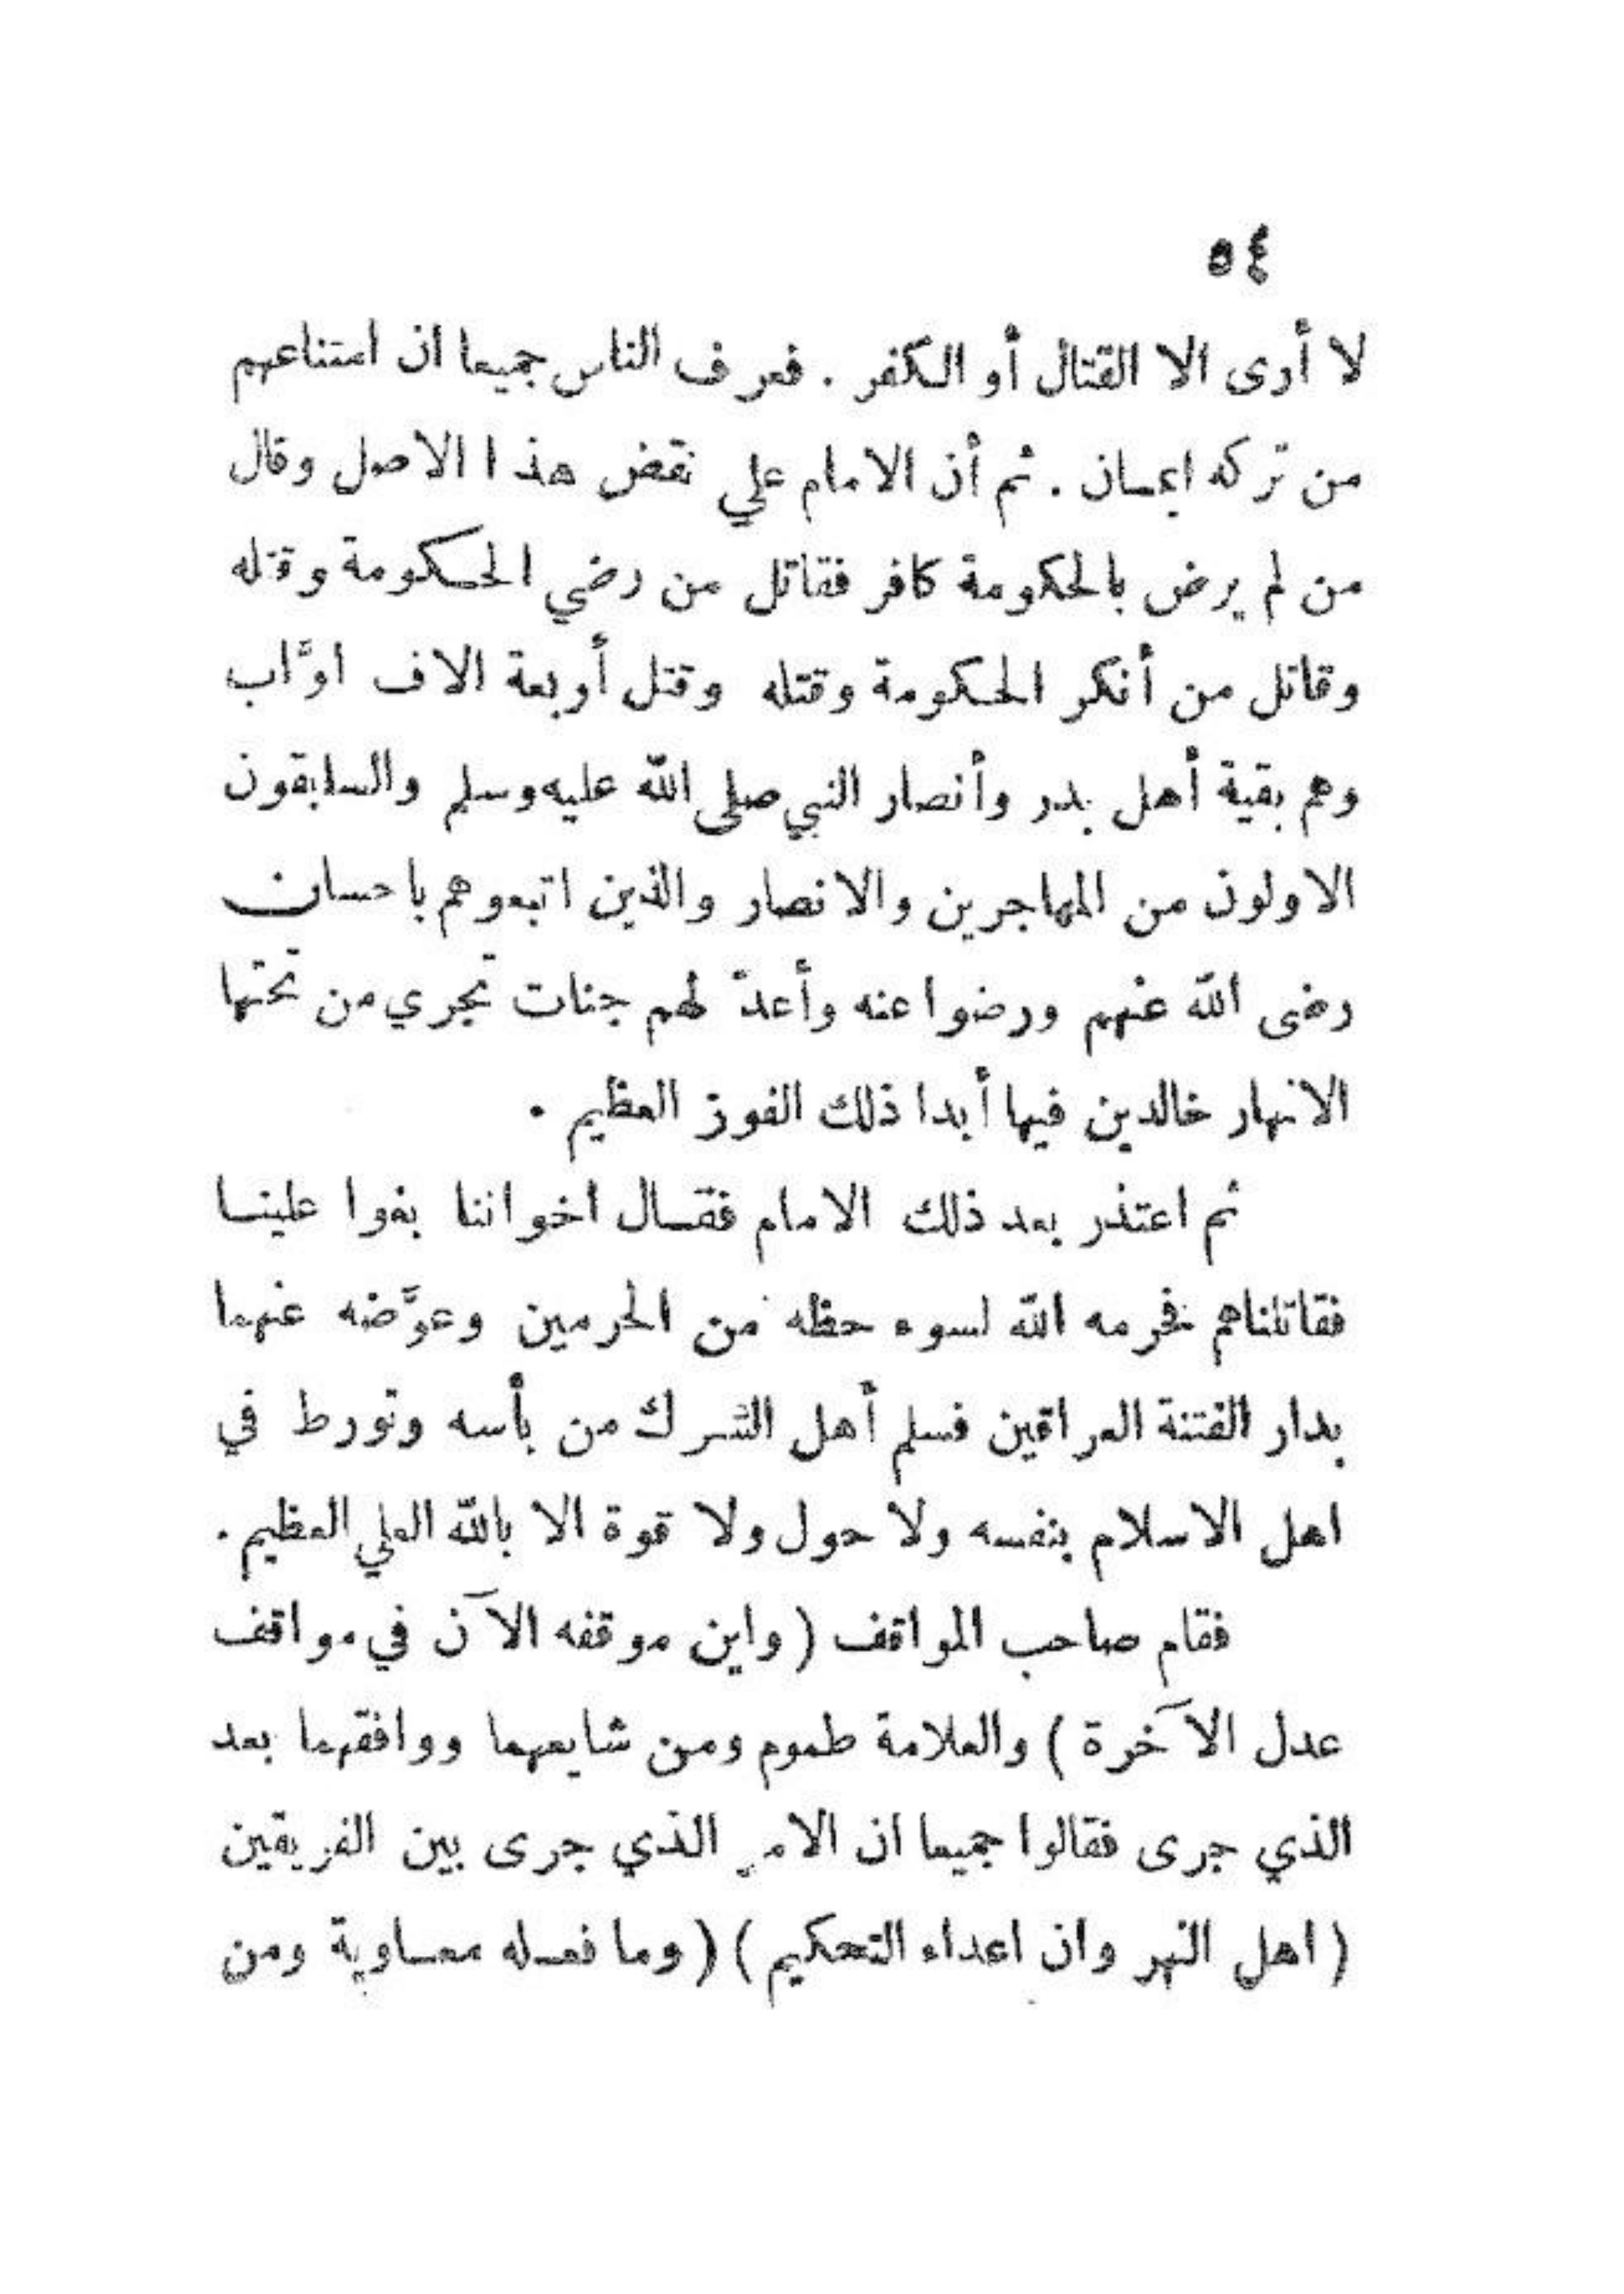 ٥٤
لا أرى الا القتال أو الكفر . فعرف الناس جميعا ان امتناعهم
من تركه ايمان . ثم أن الامام علي نقض هذا الاصل وقال
من لم يرض بالحكومة كافر فقاتل من رضي الحكومة وقتله
وقاتل من أنكر الحكومة وقتله وقتل أربعة الاف اوَّاب
وهم بقية أهل بدر وأنصار النبي صلى الله عليه وسلم والسابقون
الاولون من المهاجرين والانصار والذين اتبعوهم باحسان
رضى الله عنهم ورضوا عنه وأعدّ لهم جنات تجري من تحتها
الانهار خالدين فيها أبدا ذلك الفوز العظيم .
ثم اعتذر بعد ذلك الامام فقال اخواننا بغوا علينا
فقاتلناهم فحرمه الله لسوء حظه من الحرمين وعوَّضه عنهما
بدار الفتنة العراقين فسلم أهل الشرك من بأسه وتورط في
اهل الاسلام بنفسه ولا حول ولا قوة الا بالله العلي العظيم .
فقام صاحب المواقف ( واين موقفه الآن في مواقف
عدل الآخرة ) والعلامة طموم ومن شايعهما ووافقهما بعد
الذي جرى فقالوا جميعا ان الامر الذي جرى بين الفريقين
( اهل النهر وان اعداء التحكيم ) ( وما فعله معاوية ومن